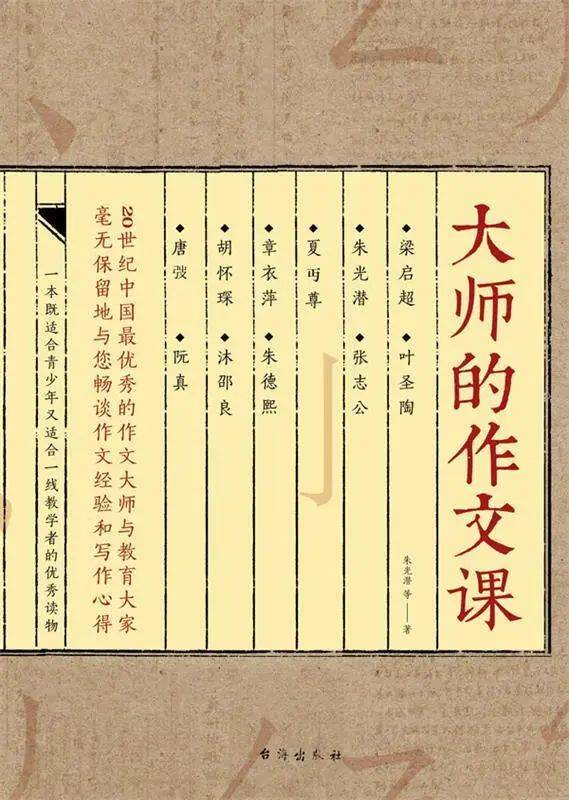 大师的作文课
朱光潜 等——著
◆梁启超 ◆叶圣陶
◆朱光潜 ◆张志公
◆夏丏尊
◆章衣萍 ◆朱德熙
◆胡怀琛 ◆沐邵良
◆唐弢 ◆阮真
20世纪中国最优秀的作文大师与教育大家
毫无保留地与您畅谈作文经验和写作心得
一本既适合青少年又适合一线教学者的优秀读物
台海出版社